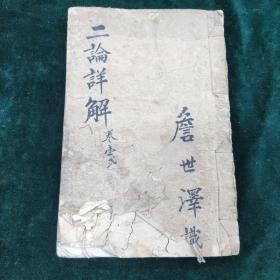 二論詳解
卷壹弍
詹世澤識